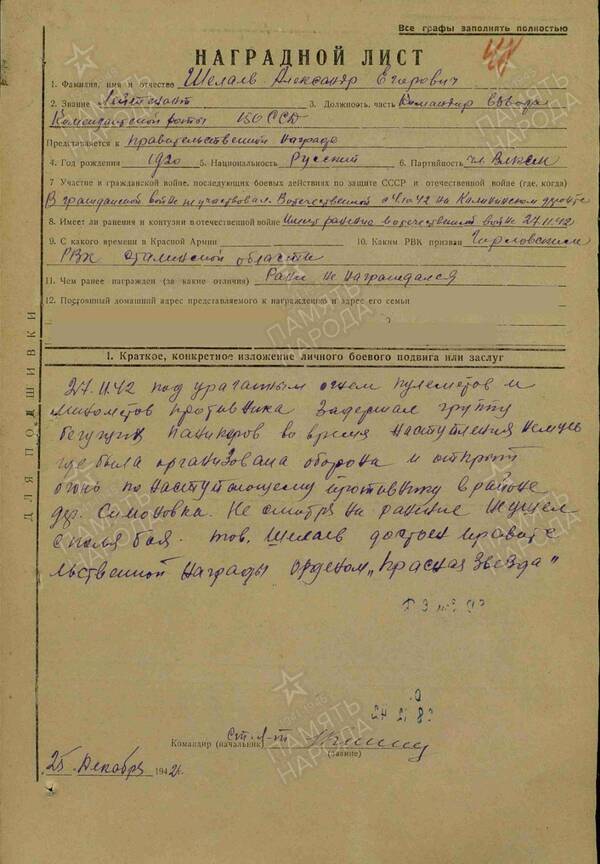 Все графы заполнять полностью
НАГРАДНОЙ ЛИСТ
1. Фамилия, имя и отчество Шелаев Александр Егорович
2. Звание Лейтенант 3. Должность, часть Командир взвода
Комендантской роты 150 ССД
Представляется к правительственной награде
4. Год рождения 1920 5. Национальность Русский 6. Партийность чл. ВЛКСМ
7. Участие в гражданской войне, последующих боевых действиях по защите СССР и отечественной войне (где, когда)
В гражданской войне не участвовал. В отечественной с 4.10.42 на Калининском фронте
8. Имеет ли ранения и контузии в отечественной войне Имеет ранение в отечественной войне 27.11.42
9. С какого времени в Красной Армии 10. Каким РВК призван
РВК Сталинской области
11. Чем ранее награжден (за какие отличия) Ранее не награждался
12. Постоянный домашний адрес представляемого к награждению и адрес его семьи
I. Краткое, конкретное изложение личного боевого подвига или заслуг
27.11.42 под ураганным огнем пулеметов и
минометов противника задержал группу
бегущих паникеров во время наступления немцев
где была организована оборона и открыт
огонь по наступающему противнику в районе
дер. Симоновка. Не смотря на ранение не ушел
с поля боя. тов. Шелаев достоен правите
льственной награды орденом „Красная звезда"
Ст. л-т
Командир (начальник)
(звание)
25 Декабря 1942 г.
ДЛЯ ПОДШИВКИ
ПАМЯТЬ НАРОДА